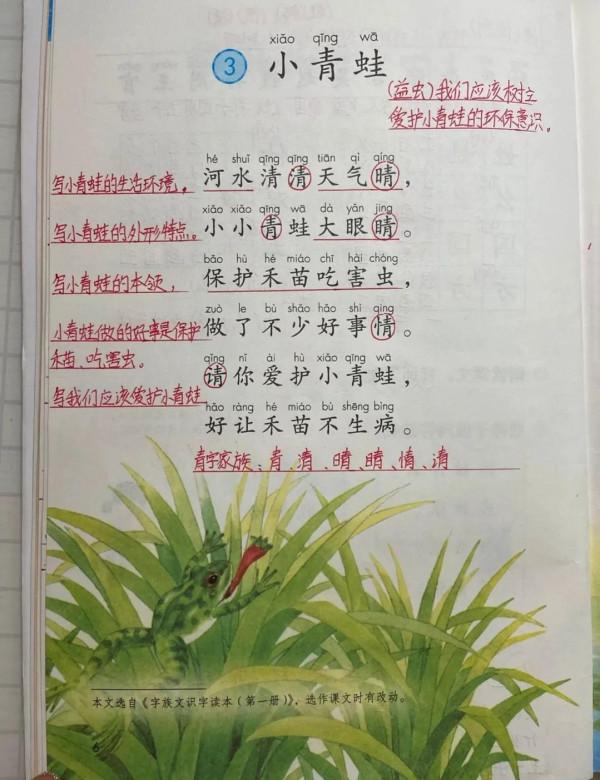 xiǎo qīng wā
3 小青蛙
(益虫)我们应该树立
爱护小青蛙的环保意识。
hé shuǐ qīng qīng tiān qì qíng
写小青蛙的生活环境, 河水清清天气晴,
xiǎo xiǎo qīng wā dà yǎn jing
写小青蛙的外形特点。 小小青蛙大眼睛。
bǎo hù hé miáo chī hài chóng
写小青蛙的本领, 保护禾苗吃害虫,
zuò le bù shǎo hǎo shì qing
小青蛙做的好事是保护 做了不少好事情。
禾苗、吃害虫。
qǐng nǐ ài hù xiǎo qīng wā
请你爱护小青蛙,
写我们应该爱护小青蛙
hǎo ràng hé miáo bù shēng bìng
好让禾苗不生病。
青字家族、青、清、晴、睛、情、请
本文选自《字族文识字读本(第一册)》,选作课文时有改动。
6